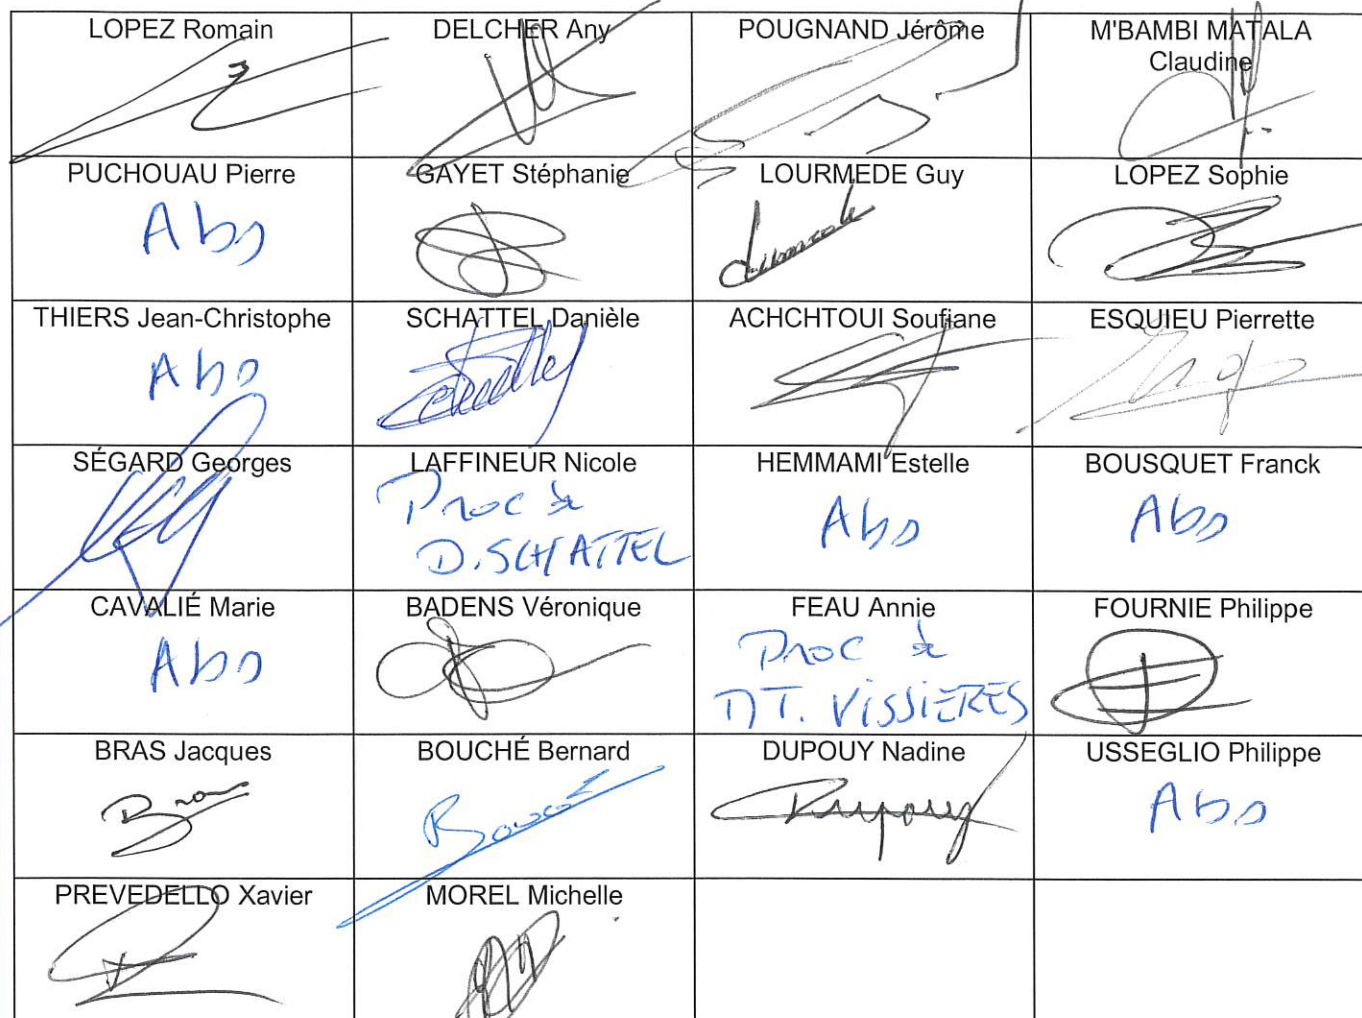 LOPEZ Romain
DELCHER Any
POUGNAND Jérôme
M'BAMBI MATALA
Claudine
PUCHOUAU Pierre
Abs
GAYET Stéphanie
LOURMEDE Guy
LOPEZ Sophie
THIERS Jean-Christophe
Abs
SCHATTEL Danièle
ACHCHTOUI Soufiane
ESQUIEU Pierrette
SÉGARD Georges
LAFFINEUR Nicole
Proc à
D. SCHATTEL
HEMMAMI Estelle
Abs
BOUSQUET Franck
Abs
CAVALIÉ Marie
Abs
BADENS Véronique
FEAU Annie
Proc à
VISSIERES
FOURNIE Philippe
BRAS Jacques
Bras
BOUCHÉ Bernard
DUPOUY Nadine
Dupouy
USSEGLIO Philippe
Abs
PREVEDELLO Xavier
MOREL Michelle